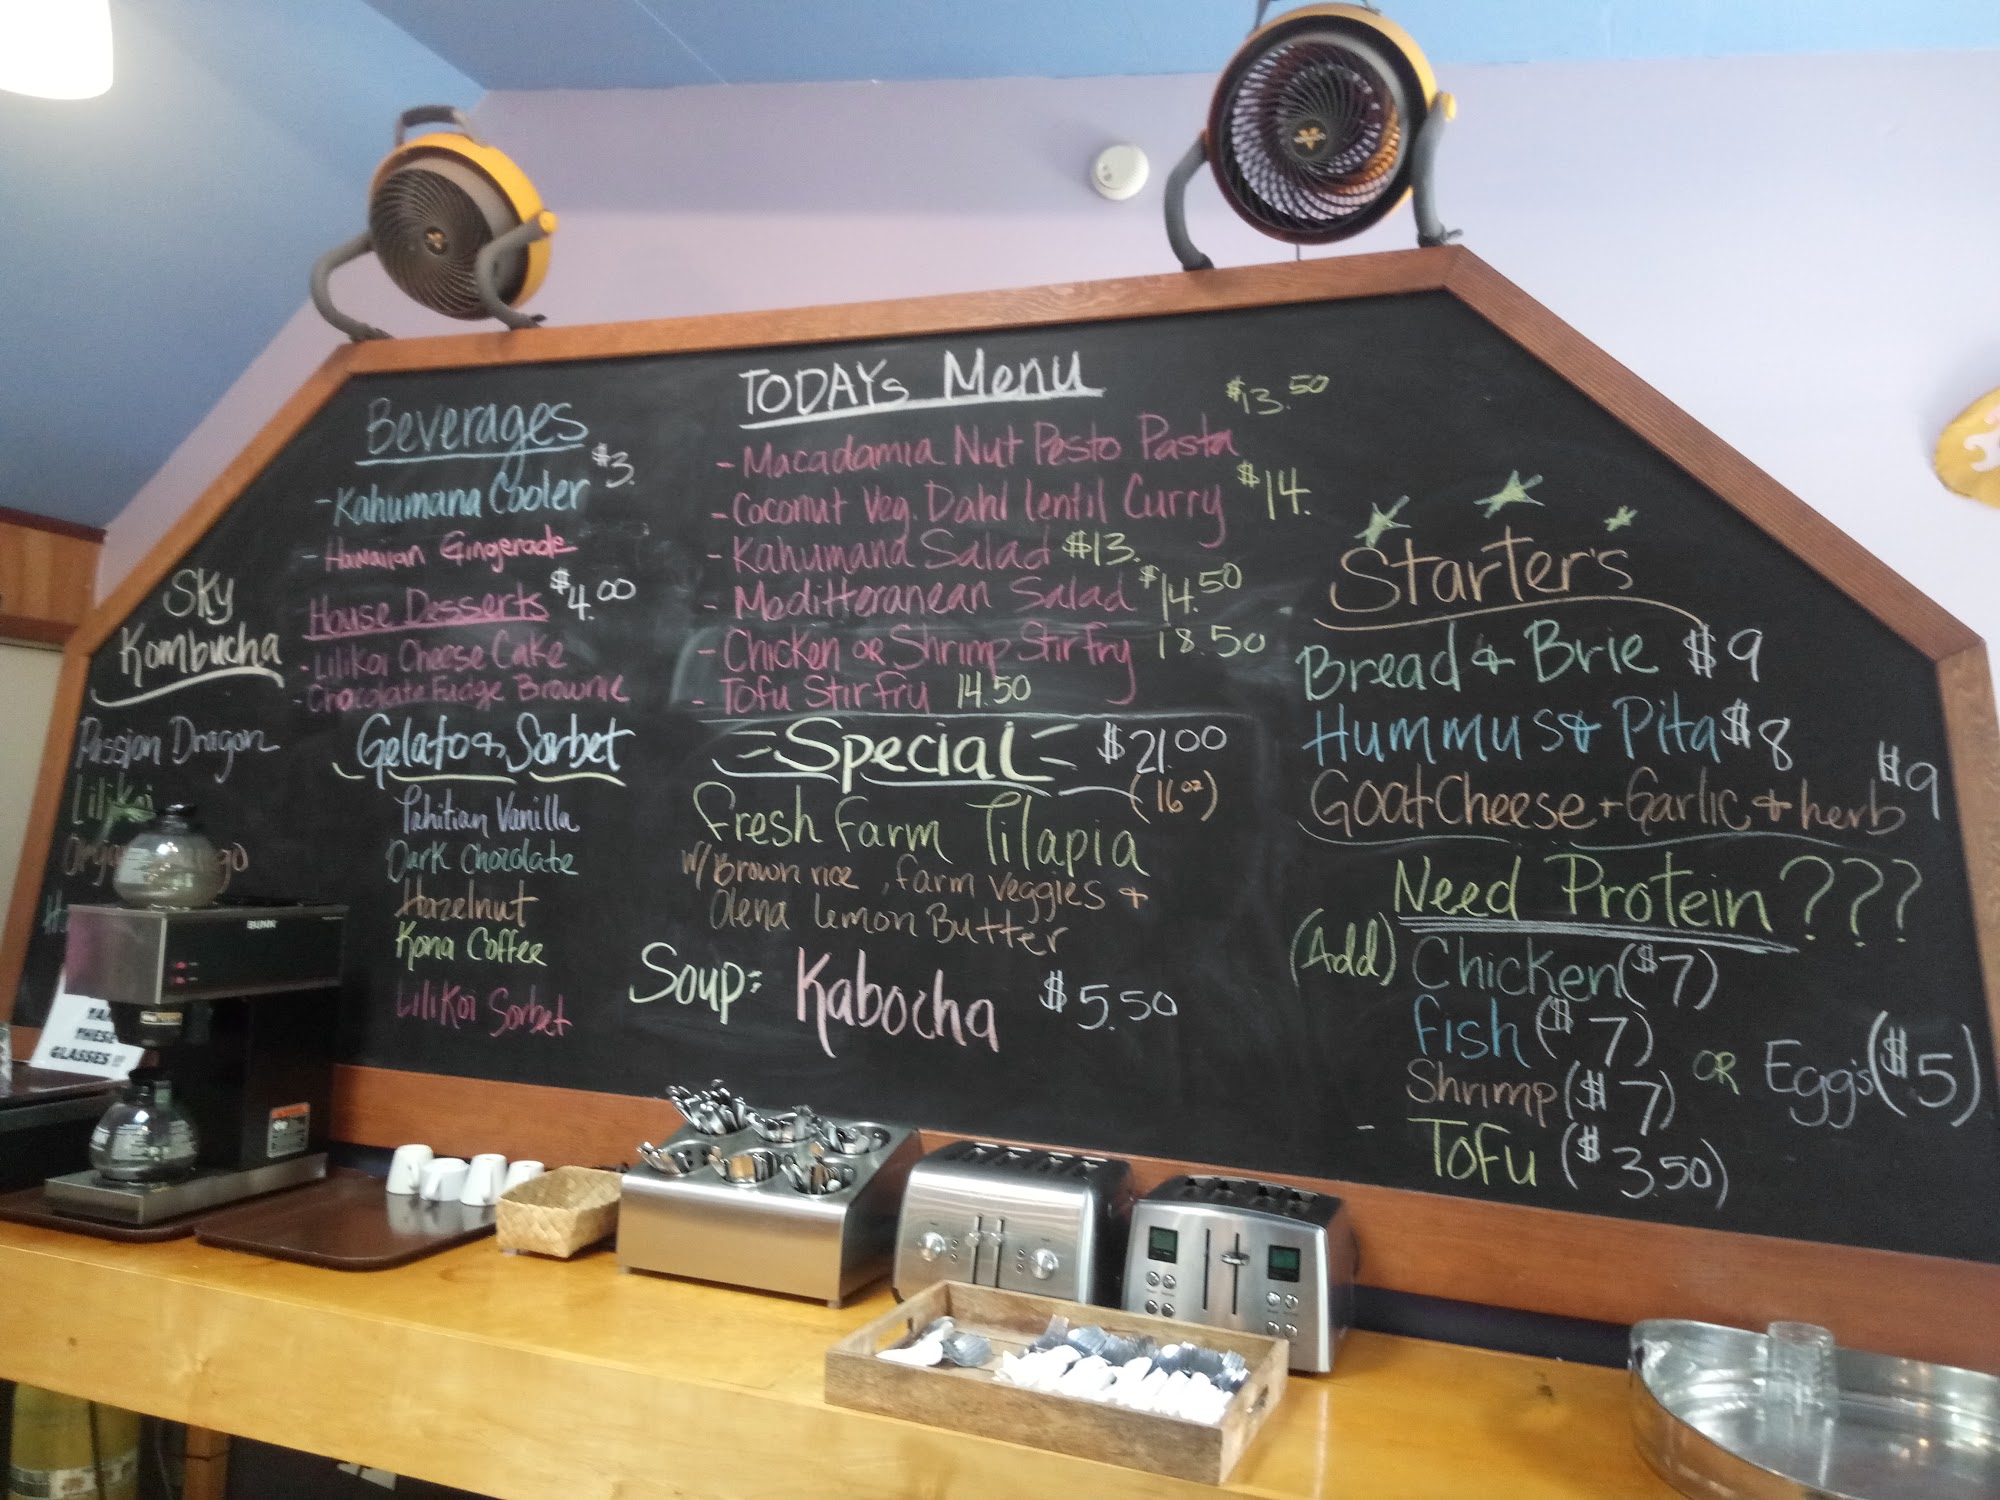 SKY
Kombucha
Passion Dragon
Lilikoi
Beverages
- Kahumana Cooler $3.
- Hawaiian Gingerade
House Desserts $4.00
- Lilikoi Cheese Cake
- Chocolate Fudge Brownie
Gelato & Sorbet
Tahitian Vanilla
Dark Chocolate
Hazelnut
Kona Coffee
Lilikoi Sorbet
TODAYs Menu
- Macadamia Nut Pesto Pasta $13.50
- Coconut Veg. Dahl lentil Curry $14.
- Kahumana Salad $13.
- Meditteranean Salad $14.50
- Chicken OR Shrimp Stir fry 18.50
- Tofu Stir fry 14.50
Special $21.00
(16oz)
Fresh Farm Tilapia
w/ Brown rice, farm veggies &
Olena Lemon Butter
Soup: Kabocha $5.50
Starter's
Bread & Brie $9
Hummus & Pita $8
Goat Cheese + Garlic & herb $9
Need Protein???
(Add) Chicken ($7)
Fish ($7)
Shrimp ($7) OR Egg's ($5)
- Tofu ($3.50)
BUNN
THESE
GLASSES !!